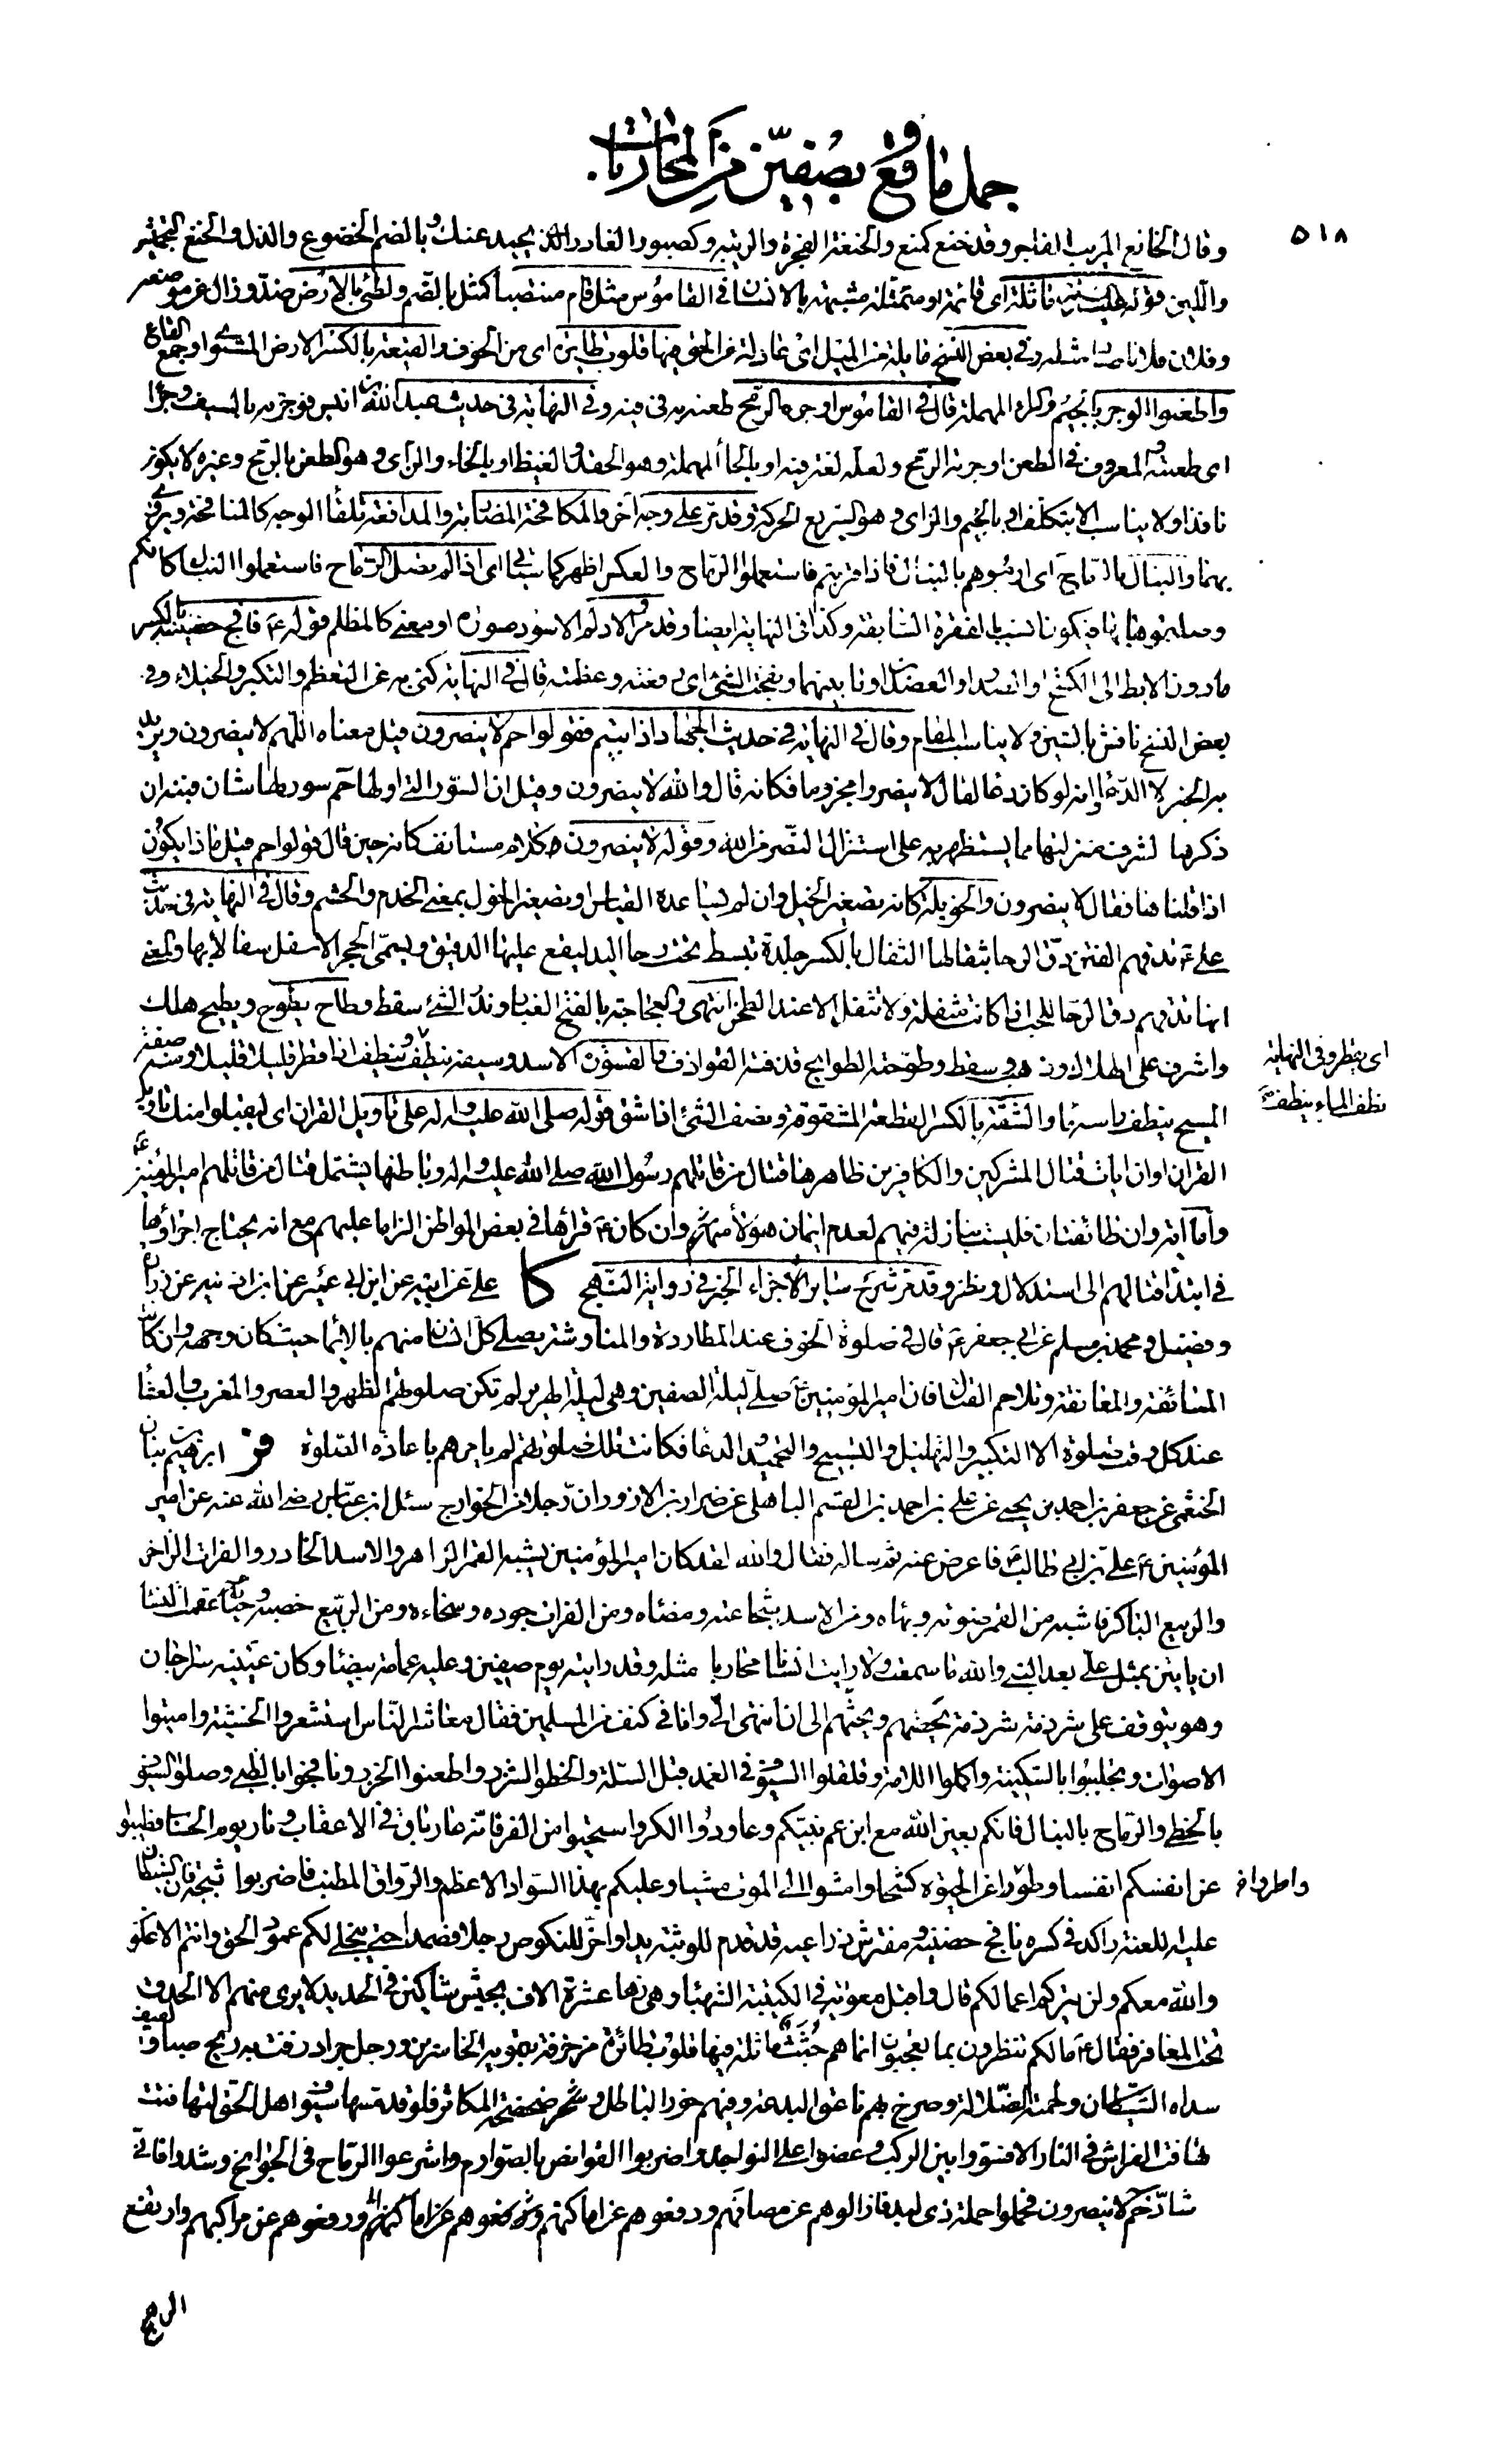 جمل ما وقع بصفين من المحاربات
٥١٨
وقال الخانع المريب الفاجر وقد خنع كمنع والخنعة الفجرة والريبة وكصبور الغادر الذي يحيد عنك وبالضم الخضوع والذل والخنع التجميش
واللين قوله ماثلة أي قائمة أو متمثلة مشبهة بالإنسان في القاموس مثل قام منتصبا كمثل بالضم ولطئ بالأرض ضد وزال عن موضعه
وفلان فلانا مثله وفي بعض النسخ مايلة من الميل أي عادلة عن الحق فيها قلوب طايرة أي من الخوف والقيعة بالكسر الأرض المستوي أو جمع القاع
واطعنوا الوجر بالجيم والراء المهملة قال في القاموس أوجره الرمح طعنه به في فيه وفي النهاية في حديث عبد الله أنيس فوجرته بالسيف وجرا
أي طعنته والمعروف في الطعن أوجرته الرمح ولعله لغة فيه أو بالحاء المهملة وهو الحقد والغيظ أو بالخاء والزاي وهو الطعن بالرمح وغيره لا يكون
نافذا ولا يناسب إلا بتكلف أو بالجيم والزاي وهو السريع الحركة وقد مر على وجه آخر والمكافحة المضاربة والمدافعة تلقاء الوجه كالمنافحة ويروى
بهما والنبال بالرماح أي ارموهم بالنبال فإذا قربتم فاستعملوا الرماح والعكس أظهر كما سيأتي أي إذا لم يصل الرماح فاستعملوا النبال كأنكم
وصلتموها بها فيكون أنسب بالفقرة السابقة وكذا في النهاية أيضا وقد مر والأدلم الأسود صورة أو معنى كالمظلم قوله ع نافج حضنيه بالكسر
ما دون الإبط إلى الكشح أو الصدر أو العضدان وما بينهما ونفجت الشيء أي رفعته وعظمته قال في النهاية كنى به عن التعظم والتكبر والخيلاء وفي
بعض النسخ نافش بالشين ولا يناسب المقام وقال في النهاية في حديث الجهاد إذا بيتم فقولوا حم لا ينصرون قيل معناه اللهم لا ينصرون ويريد
به الخبر لا الدعاء لأنه لو كان دعاء لقال لا ينصروا مجزوما فكأنه قال والله لا ينصرون وقيل إن السور التي أولها حم سور لها شأن فنبه أن
ذكرها لشرف منزلتها مما يستظهر به على استنزال النصر من الله وقوله لا ينصرون كلام مستأنف كأنه حين قال قولوا حم قيل ماذا يكون
إذا قلنا ها فقال لا ينصرون والخويلة كأنه تصغير الخيل وإن لم يساعده القياس أو تصغير الخول بمعنى الخدم والحشم وقال في النهاية في حديث
علي ع تدقهم الفتن دق الرحا بثفالها الثفال بالكسر جلدة تبسط تحت رحا اليد ليقع عليها الدقيق ويسمى الحجر الأسفل ثفالا بها والمعنى
أنها تدقهم دق الرحا للحب إذا كانت مثفلة ولا تثفل إلا عند الطحن انتهى والعجاجة بالفتح الغبار وند الشيء سقط وطاح يطوح ويطيح هلك
وأشرف على الهلاك وذهب وسقط وطوحته الطوايح قذفته القواذف والقسورة الأسد وسيفه ينطف وينطف إذا قطر قليلا قليلا ومنه صفة
أي يقطر وفي النهاية
نطف الماء ينطف
المسيح ينطف رأسه ماء والشقة بالكسر القطعة المشقوقة ونصف الشيء إذا شق قوله صلى الله عليه وآله على تأويل القرآن أي لم يقبلوا منك تأويل
القرآن أو إن آيات قتال المشركين والكافرين ظاهرها قتال من قاتلهم رسول الله صلى الله عليه وآله وباطنها يشتمل قتال من قاتلهم أمير المؤمنين
وأما آية وإن طائفتان فليست بنازلة فيهم لعدم إيمان هؤلاء منهم وإن كان ع قرأها في بعض المواطن إلزاما عليهم مع أنه يحتاج إجراؤها
في ابتداء قتالهم إلى استدلال ونظر وقد مر شرح سائر الأجزاء الخبر في رواية النهج كا علي عن أبيه عن ابن أبي عمير عن ابن أذينة عن زرارة
وفضيل ومحمد بن مسلم عن أبي جعفر ع قال في صلوة الخوف عند المطاردة والمناوشة يصلي كل إنسان منهم بالإيماء حيث كان وجهه وإن كانت
المسائفة والمعانقة وتلاحم القتال فإن أمير المؤمنين ع صلى ليلة الصفين وهي ليلة الهرير لم تكن صلوتهم الظهر والعصر والمغرب والعشاء
عند كل وقت صلوة إلا التكبير والتهليل والتسبيح والتحميد والدعاء فكانت تلك صلوتهم لم يأمرهم بإعادة الصلوة فر إبراهيم بن بنان
الخثعمي عن جعفر بن أحمد بن يحيى عن علي بن أحمد بن القسم الباهلي عن ضرار بن الأزور أن رجلا من الخوارج سئل ابن عباس رضي الله عنه عن أمير
المؤمنين ع علي بن أبي طالب ع فأعرض عنه ثم سأله فقال والله لقد كان أمير المؤمنين يشبه القمر الزاهر والأسد الخادر والفرات الزاخر
والربيع الباكر فاشبه من القمر ضوئه وبهاءه ومن الأسد شجاعته ومضاءه ومن الفرات جوده وسخاءه ومن الربيع خصبه وحباءه عقمت النساء
أن يأتين بمثل علي بعد النبي والله ما سمعت ولا رأيت إنسانا محاربا مثله وقد رأيته يوم صفين وعليه عمامة بيضاء وكأن عينيه سراجان
وهو يتوقف على شرذمة شرذمة يحضهم ويحثهم إلى أن انتهى إلي وأنا في كنف من المسلمين فقال معاشر الناس استشعروا الخشية وأميتوا
الأصوات وتجلببوا بالسكينة وأكملوا اللامة وقلقلوا السيوف في الغمد قبل السلة والحظوا الشزر واطعنوا الخزر ونافحوا بالظبى وصلوا السيوف
بالخطى والرماح بالنبال فإنكم بعين الله مع ابن عم نبيكم وعاودوا الكر واستحيوا من الفر فإنه عار باق في الأعقاب ونار يوم الحساب فطيبوا
عن أنفسكم أنفسا واطووا عن الحيوة كشحا وامشوا إلى الموت مشيا وعليكم بهذا السواد الأعظم والرواق المطنب فاضربوا ثبجه فإن الشيطان
عليه اللعنة راكد في كسره نافج حضنيه ومفترش ذراعيه قد قدم للوثبة يدا وأخر للنكوص رجلا فصمدا حتى ينجلي لكم عمود الحق وأنتم الأعلون
والله معكم ولن يتركم أعمالكم قال وأقبل معوية في الكتيبة الشهباء وهي زهاء عشرة آلاف بجيش شاكين في الحديد لا يرى منهم إلا الحدق
تحت المغافر فقال ع ما لكم تنظرون بما تعجبون إنما هم جثث ماثلة فيها قلوب طائرة مزخرفة بتمويه الخاسرين ورجل جراد زفت به ريح صبا ولفيف
سداه الشيطان ولحمته الضلالة وصرخ بهم ناعق البدعة وفيهم خور الباطل وضحضحة المكاثر فلو قد مسها سيوف أهل الحق لتهافتت
تهافت الفراش في النار ألا فسووا بين الركب وعضوا على النواجذ واضربوا القوانص بالصوارم واشرعوا الرماح في الجوانح وشدوا فإني
شاد حم لا ينصرون فحملوا حملة ذي لبد فأزالوهم عن مصافهم ودفعوهم عن أماكنهم ورفعوهم عن مراكبهم وارتفع
الرهج